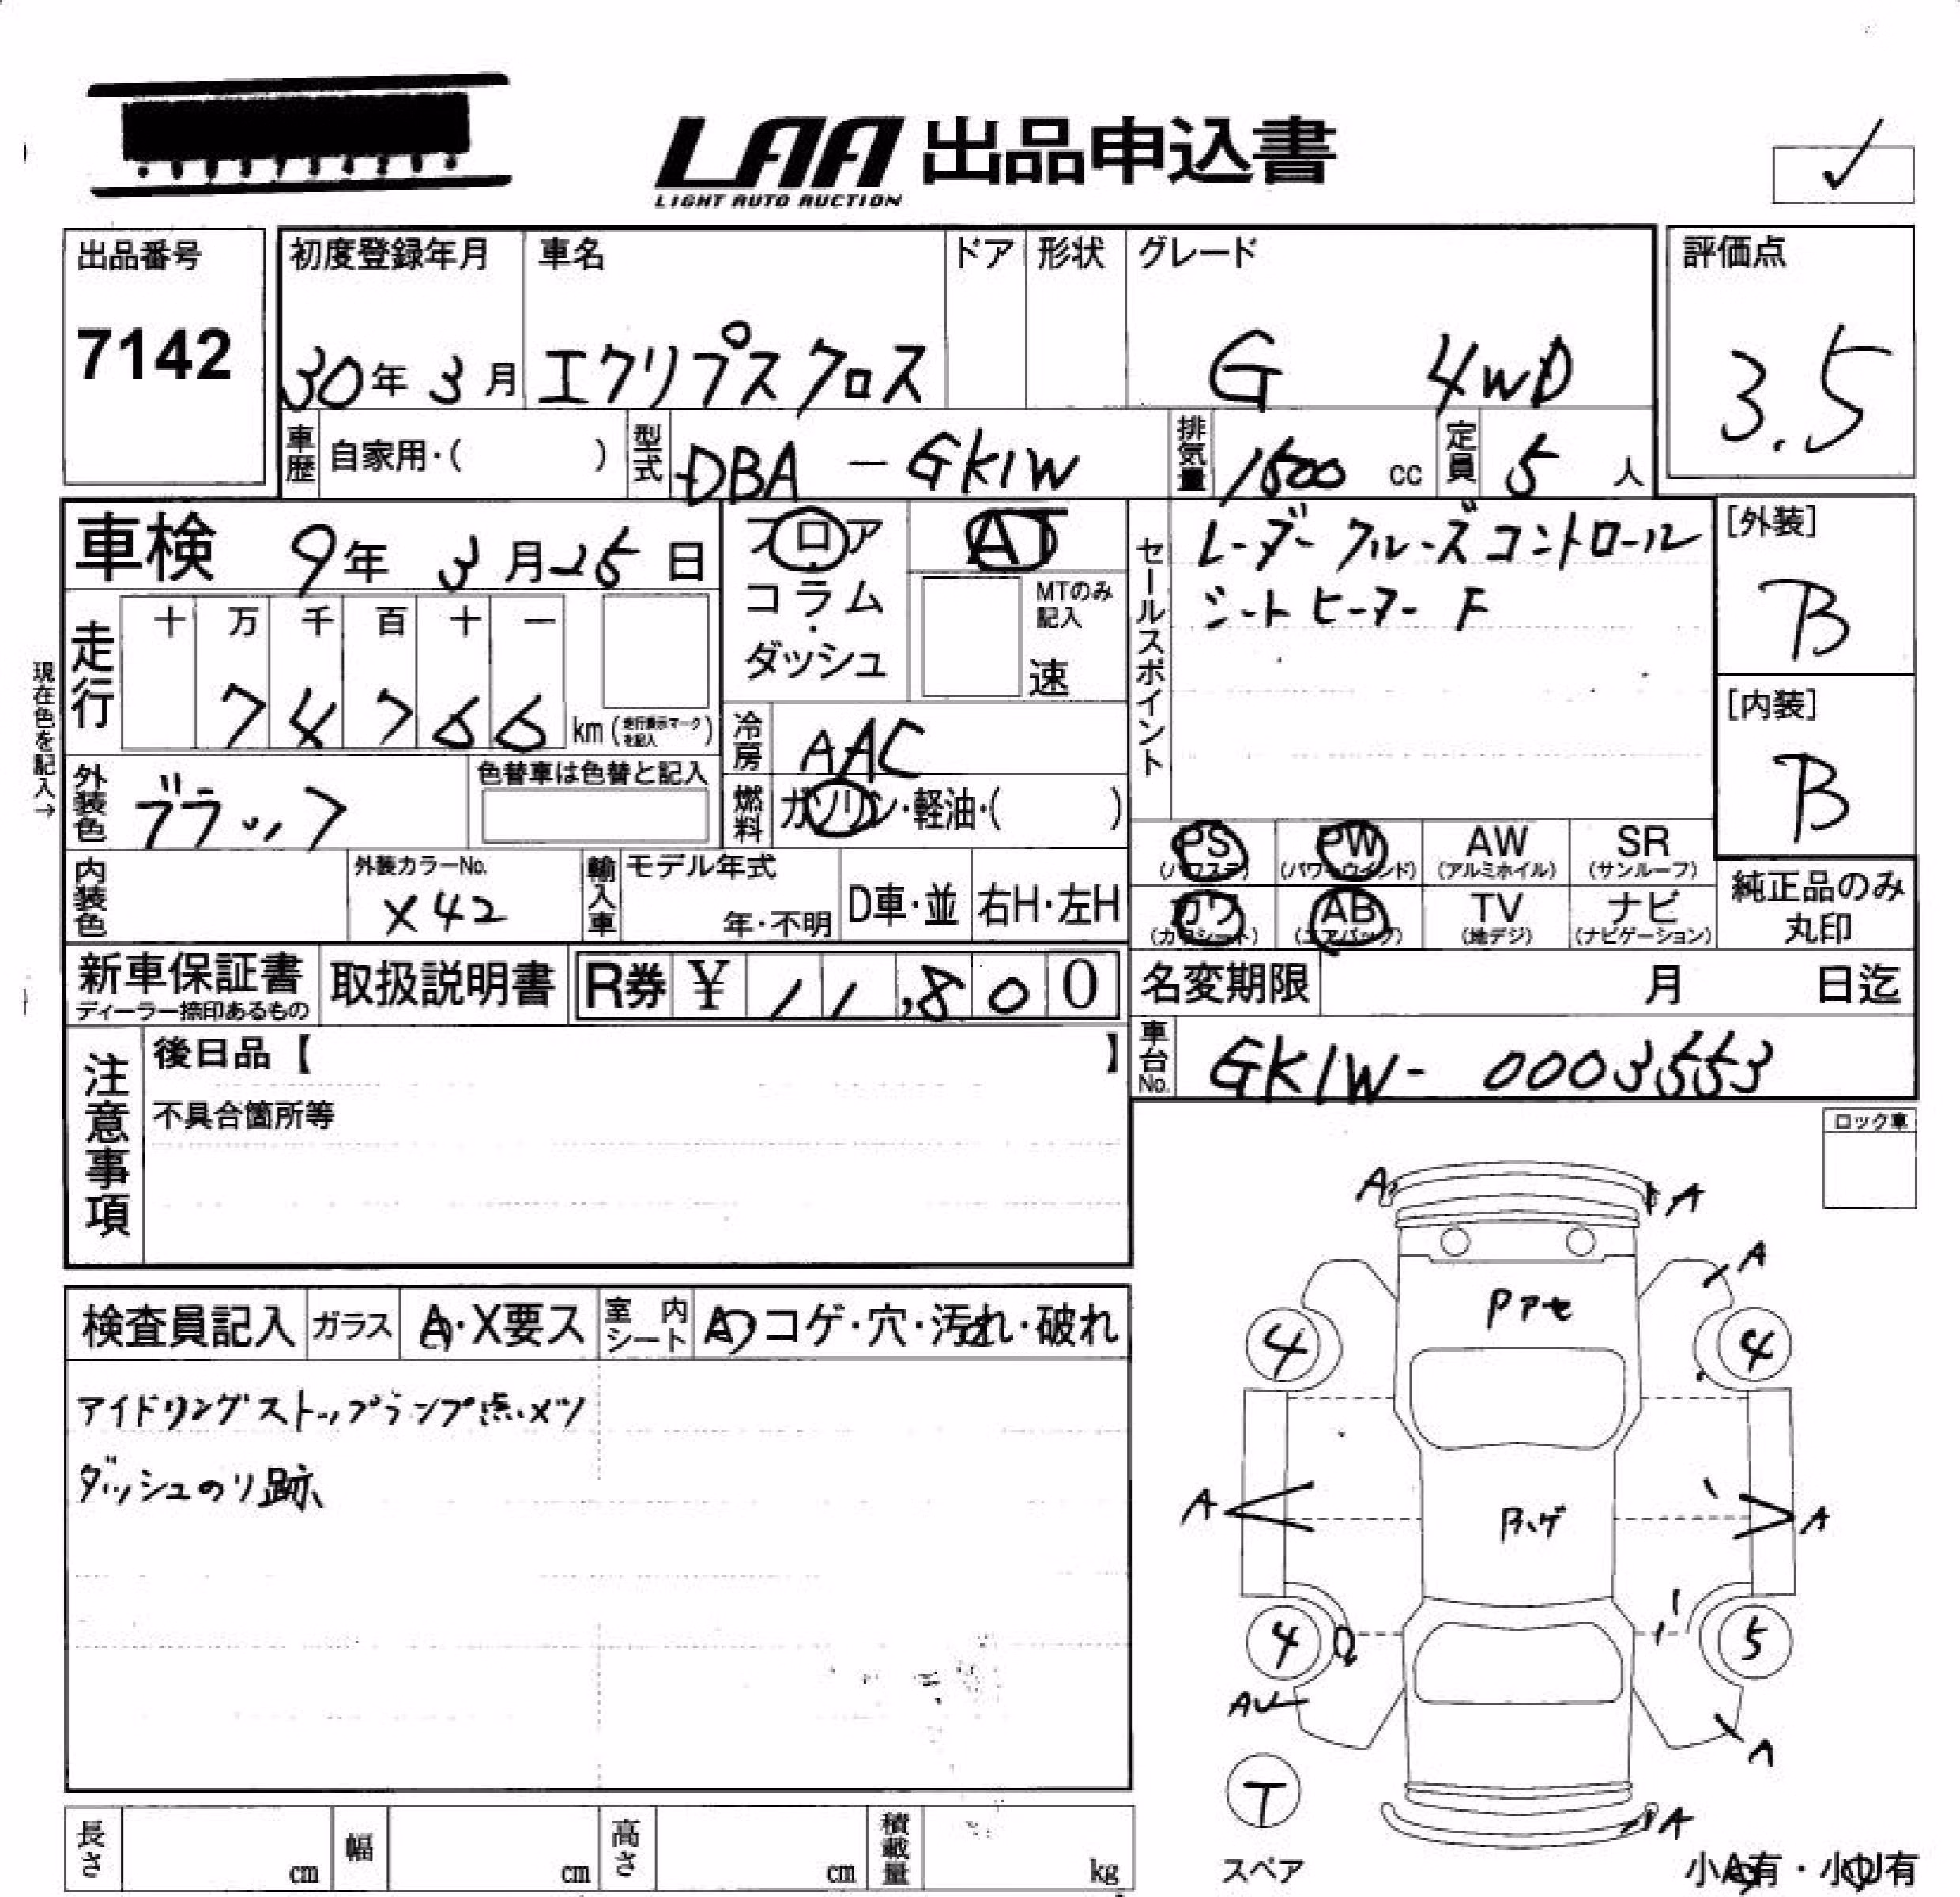 LAA 出品申込書
LIGHT AUTO AUCTION
✓
出品番号
7142
初度登録年月
30年 3月
車名
エクリプスクロス
ドア
形状
グレード
G 4WD
評価点
3.5
車歴
自家用・( )
型式
DBA - GK1W
排気量
1500 cc
定員
5 人
車検 9年 3月25日
フロア
・
コラム
・
ダッシュ
AT
MTのみ
記入
速
セールスポイント
レーダークルーズコントロール
シートヒーター F
[外装]
B
[内装]
B
現在色を記入→
走行
十 万 千 百 十 一
7 4 7 6 6 km (走行表示マークを記入)
冷房
AAC
外装色
ブラック
色替車は色替と記入
燃料
ガソリン・軽油・( )
PS
(パワステ)
PW
(パワーウインド)
AW
(アルミホイル)
SR
(サンルーフ)
カワ
(カワシート)
AB
(エアバッグ)
TV
(地デジ)
ナビ
(ナビゲーション)
純正品のみ
丸印
内装色
外装カラーNo.
X42
輸入車
モデル年式
年・不明
D車・並
右H・左H
新車保証書
ディーラー捺印あるもの
取扱説明書
R券 ¥ 11,800
名変期限
月 日迄
車台No.
GK1W- 0003553
注意事項
後日品【 】
不具合箇所等
ロック車
検査員記入
ガラス
A・X要ス
室内シート
A・コゲ・穴・汚れ・破れ
アイドリングストップランプ点メツ
ダッシュのり跡
A
A
A
Pアセ
4
4
A
Rハゲ
A
4
5
AU
A
T
スペア
A
小A有・小U有
長さ
cm
幅
cm
高さ
cm
積載量
kg